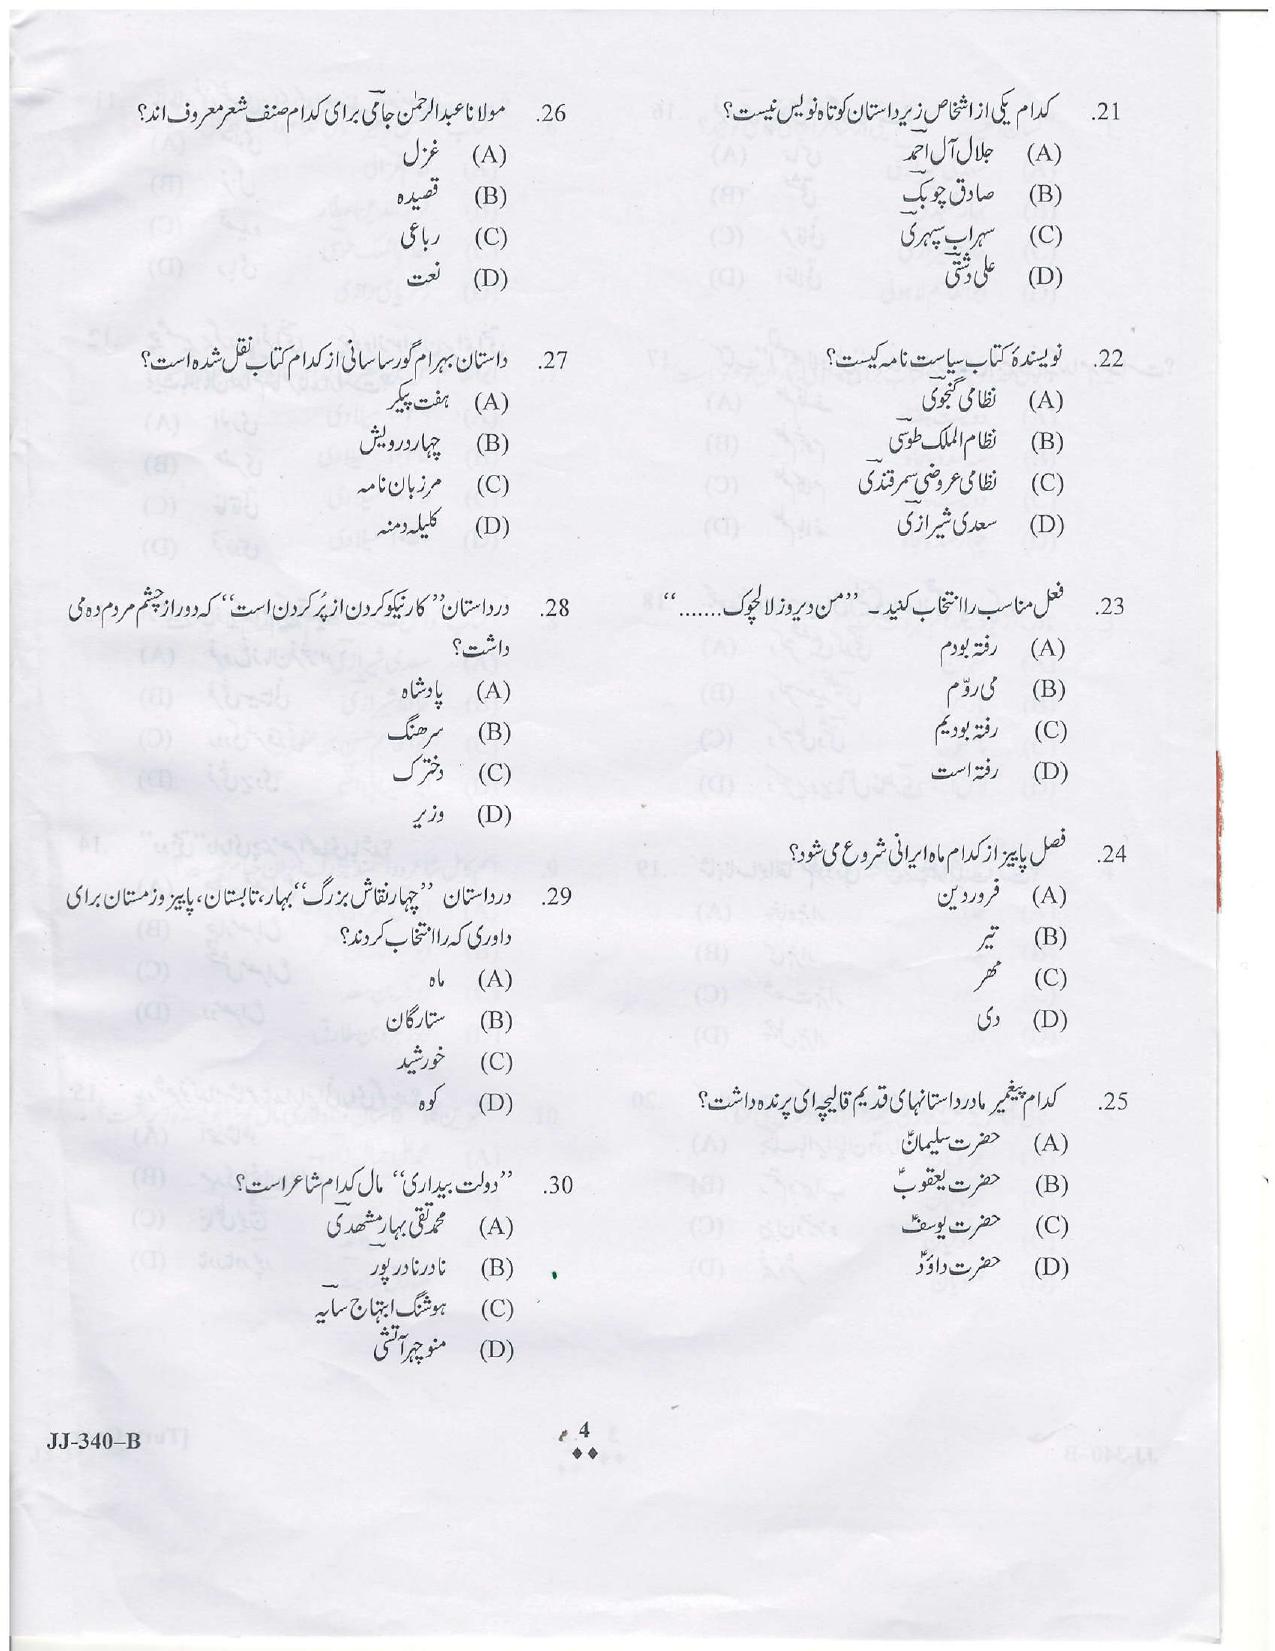 21. کدام یکی از اشخاص زیر داستان کوتاه نویس نیست؟
(A) جلال آل احمد
(B) صادق چوبک
(C) سہراب سپہری
(D) علی دشتی
22. نویسندۂ کتاب سیاست نامہ کیست؟
(A) نظامی گنجوی
(B) نظام الملک طوسی
(C) نظامی عروضی سمرقندی
(D) سعدی شیرازی
23. فعل مناسب را انتخاب کنید ۔ ”من دیروز لالچوک.......“
(A) رفتہ بودم
(B) می روّم
(C) رفتہ بودیم
(D) رفتہ است
24. فصل پاییز از کدام ماہ ایرانی شروع می شود؟
(A) فروردین
(B) تیر
(C) مہر
(D) دی
25. کدام پیغمبر ما در داستانہای قدیم قالیچہ ای پرندہ داشت؟
(A) حضرت سلیمانؑ
(B) حضرت یعقوبؑ
(C) حضرت یوسفؑ
(D) حضرت داؤدؑ
26. مولانا عبدالرحمٰن جامی برای کدام صنف شعر معروف اند؟
(A) غزل
(B) قصیدہ
(C) رباعی
(D) نعت
27. داستان بہرام گور ساسانی از کدام کتاب نقل شدہ است؟
(A) ہفت پیکر
(B) چہار درویش
(C) مرزبان نامہ
(D) کلیلہ دمنہ
28. در داستان ”کار نیکو کردن از پُر کردن است“ کہ دور از چشم مردم دہ می
داشت؟
(A) پادشاہ
(B) سرھنگ
(C) دخترک
(D) وزیر
29. در داستان ”چہار نقاش بزرگ“ بہار، تابستان، پاییز و زمستان برای
داوری کہ را انتخاب کردند؟
(A) ماہ
(B) ستارگان
(C) خورشید
(D) کوہ
30. ”دولت بیداری“ مال کدام شاعر است؟
(A) محمد تقی بہار مشھدی
(B) نادر نادر پور
(C) ہوشنگ ابتہاج سایہ
(D) منوچہر آتشی
JJ-340–B
4